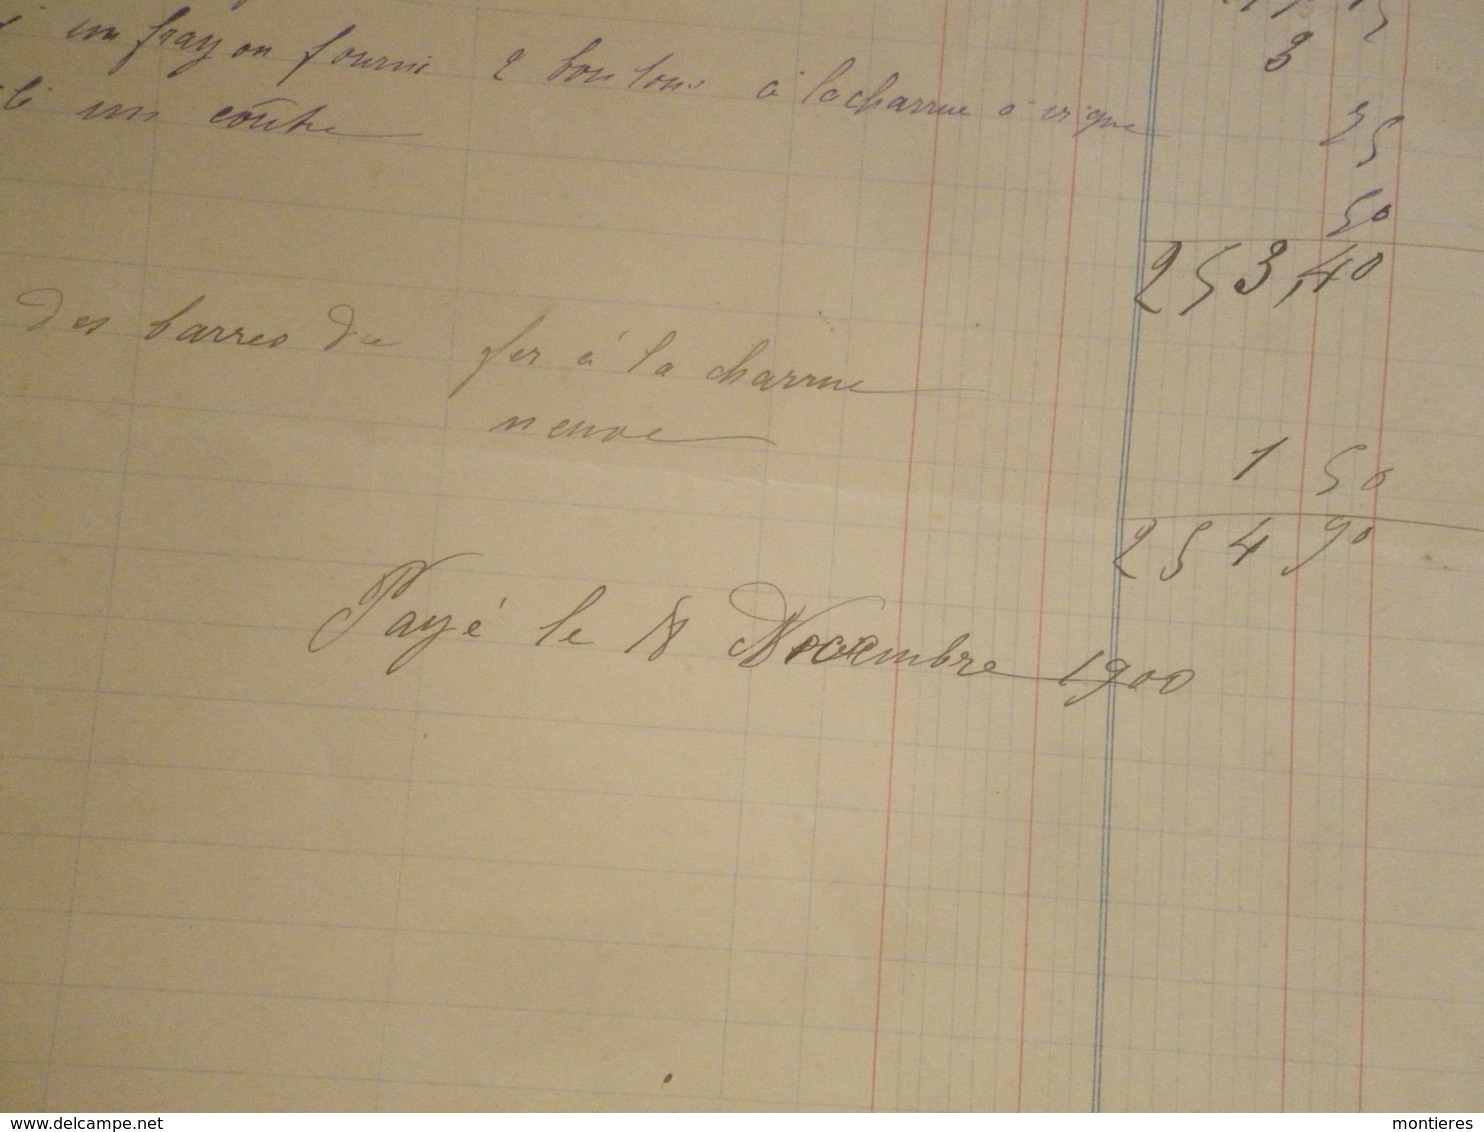 3
un frayon fourni 2 boulons à la charrue à vigne 25
un coûtre 50
253,40
des barres de fer à la charrue
neuve 1 50
254 90
Payé le 8 Novembre 1900
www.delcampe.net
montieres